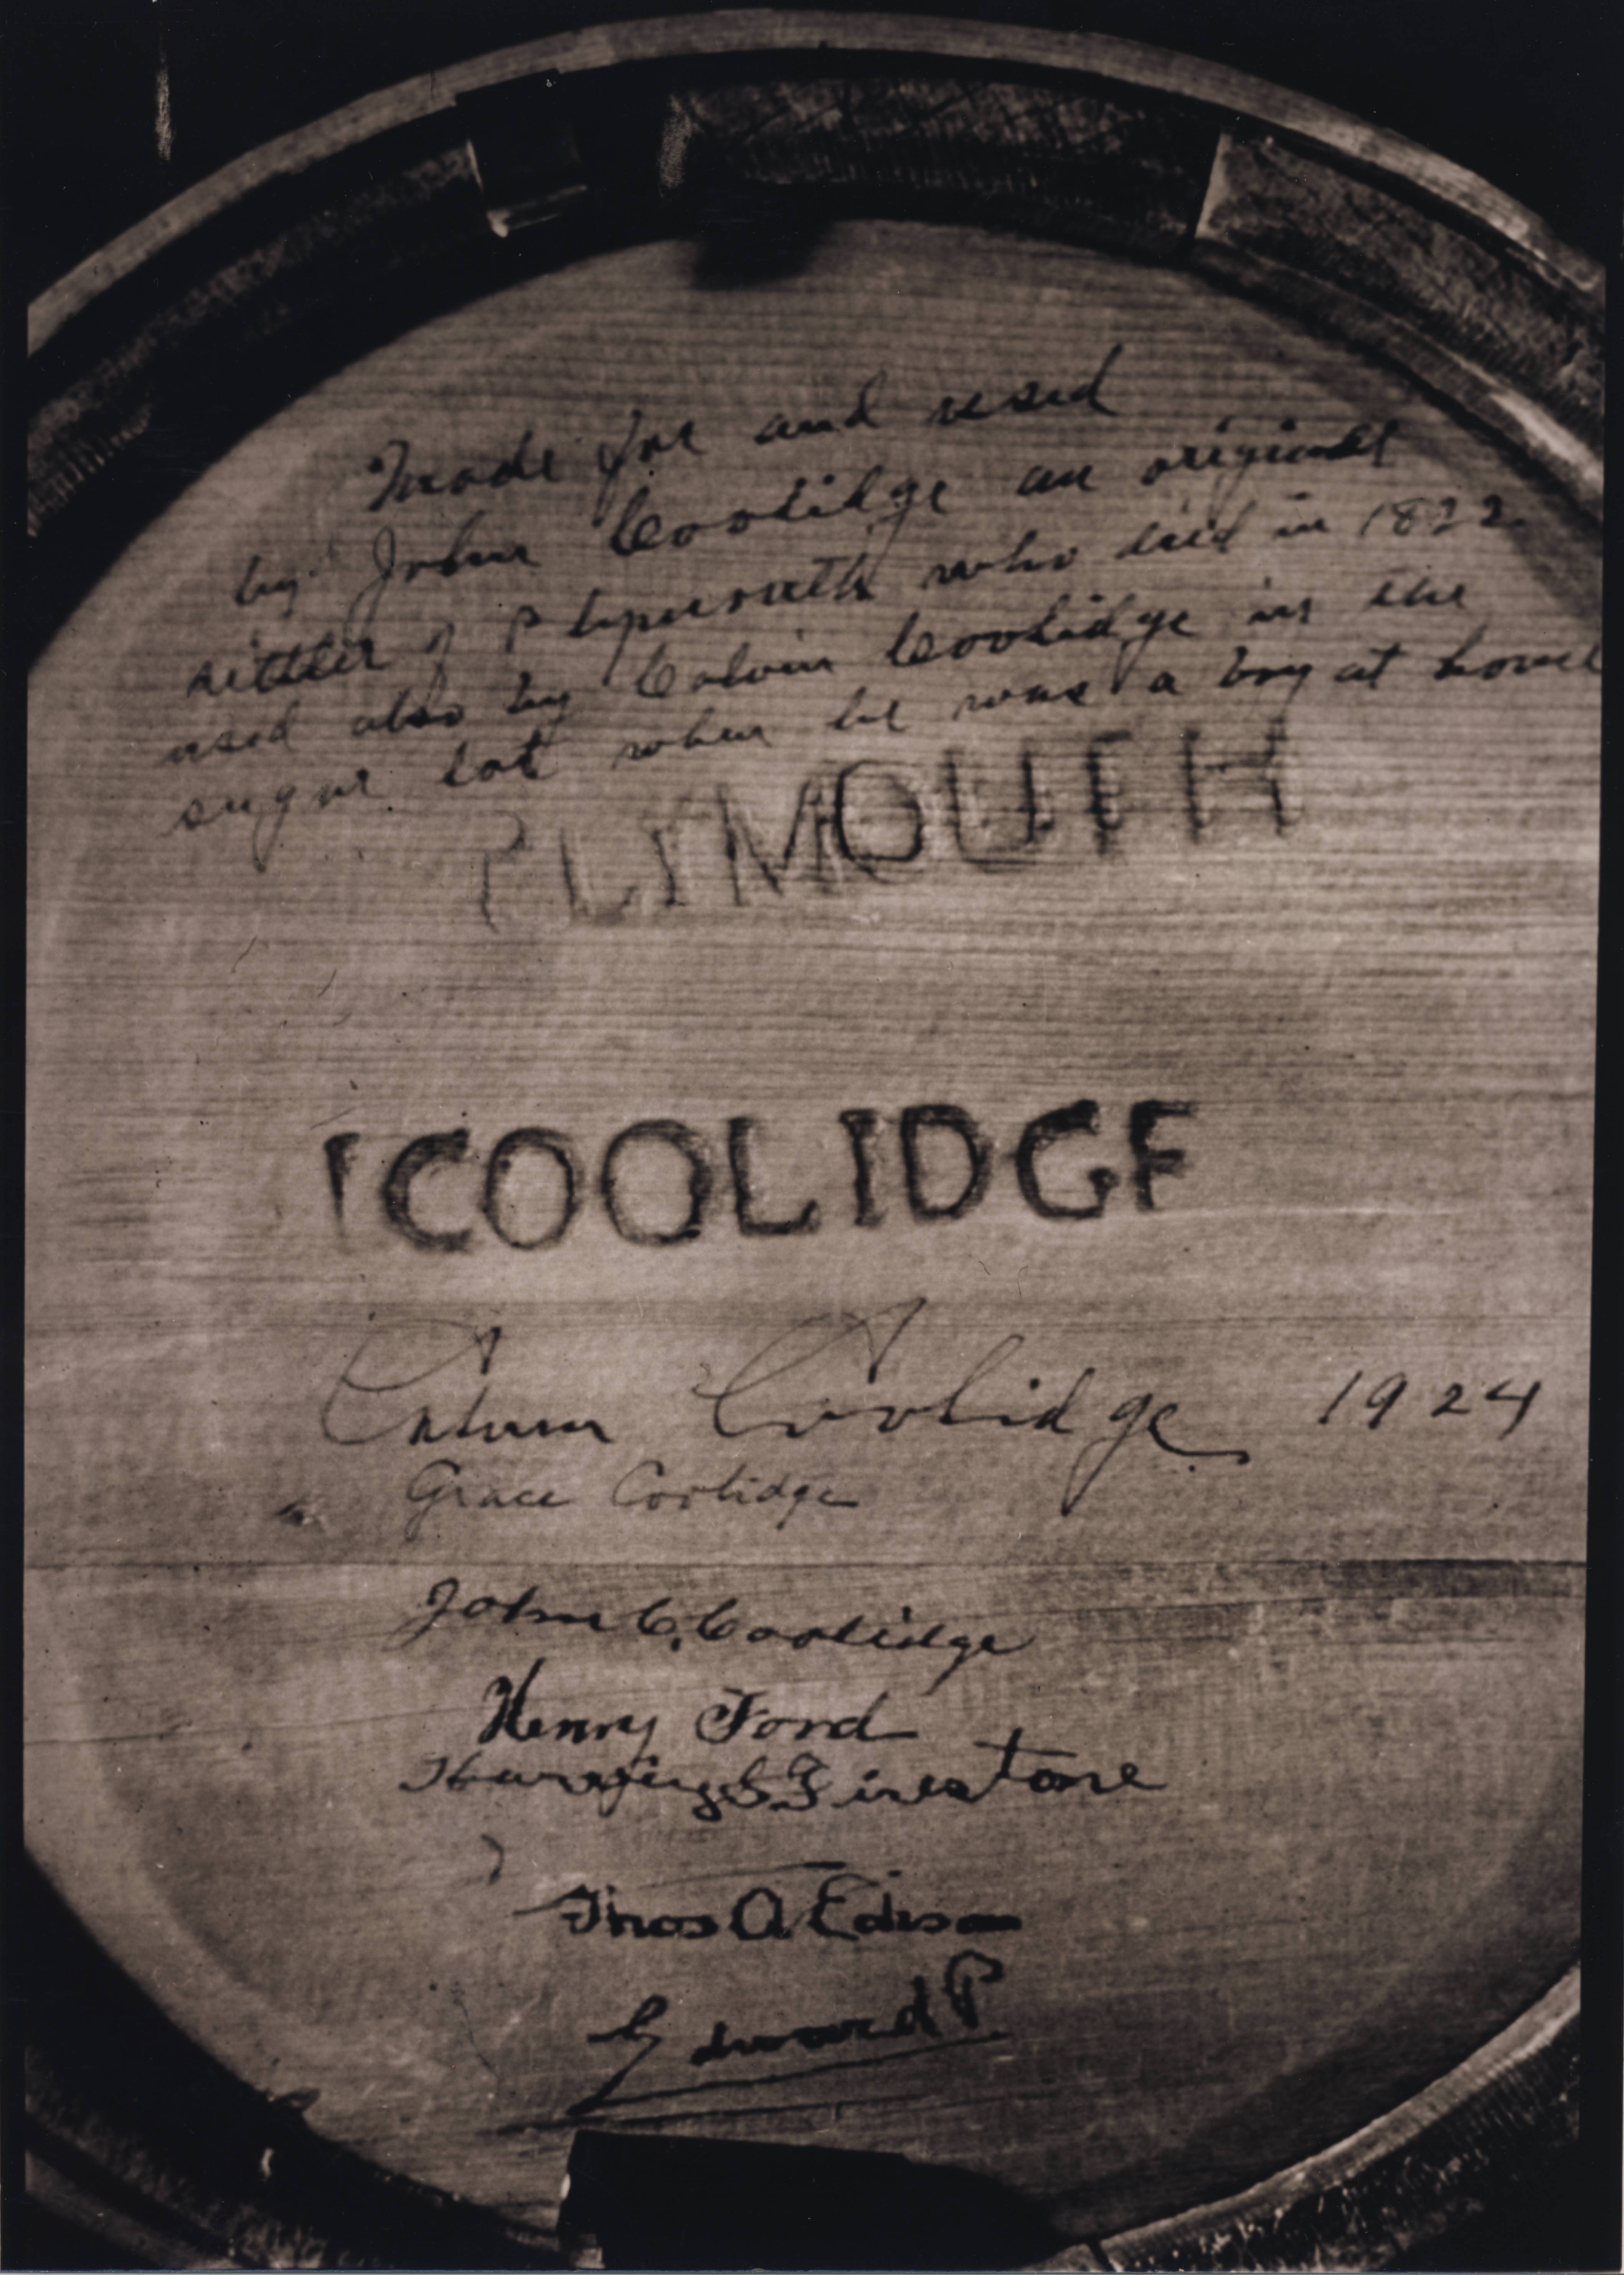 Made for and used
by John Coolidge an original
settler of Plymouth who died in 1822
used also by Calvin Coolidge in the
sugar lot when he was a boy at home
PLYMOUTH
COOLIDGE
Calvin Coolidge 1924
Grace Coolidge
John C. Coolidge
Henry Ford
Harvey S Firestone
Thos A Edison